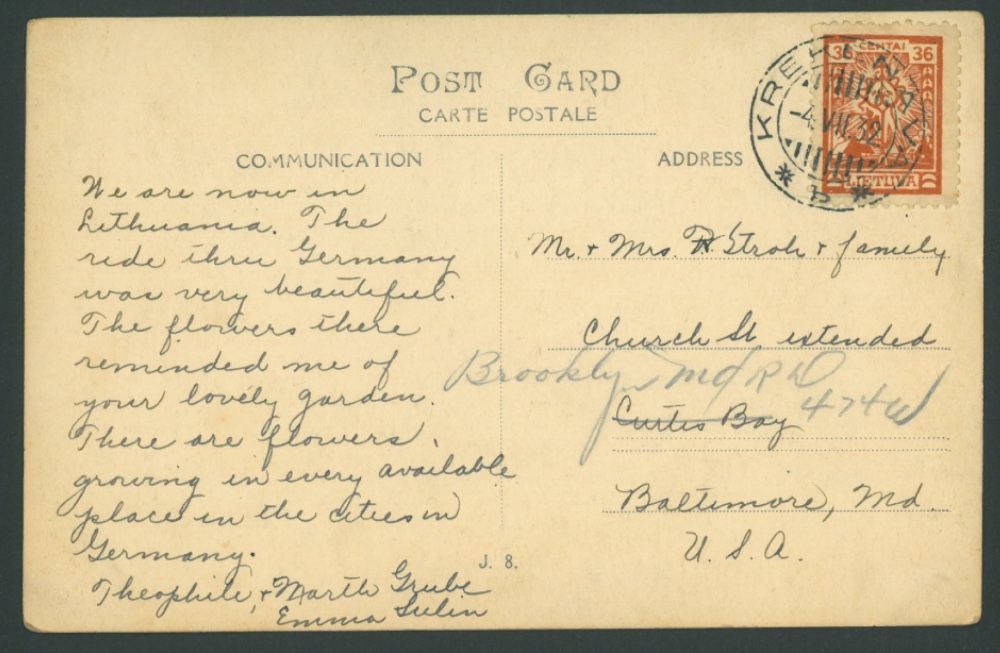 POST CARD
CARTE POSTALE
COMMUNICATION
ADDRESS
36 CENTAI 36
LIETUVA
-4.VII.32
We are now in
Lithuania. The
ride thru Germany
was very beautiful.
The flowers there
reminded me of
your lovely garden.
There are flowers
growing in every available
place in the cities in
Germany.
Theophile, + Marth Grube
Emma
Mr. + Mrs. Stroh + family
Church St extended
Brooklyn Md R D
474W
Curtis Bay
Baltimore, Md.
U. S. A.
J. 8.